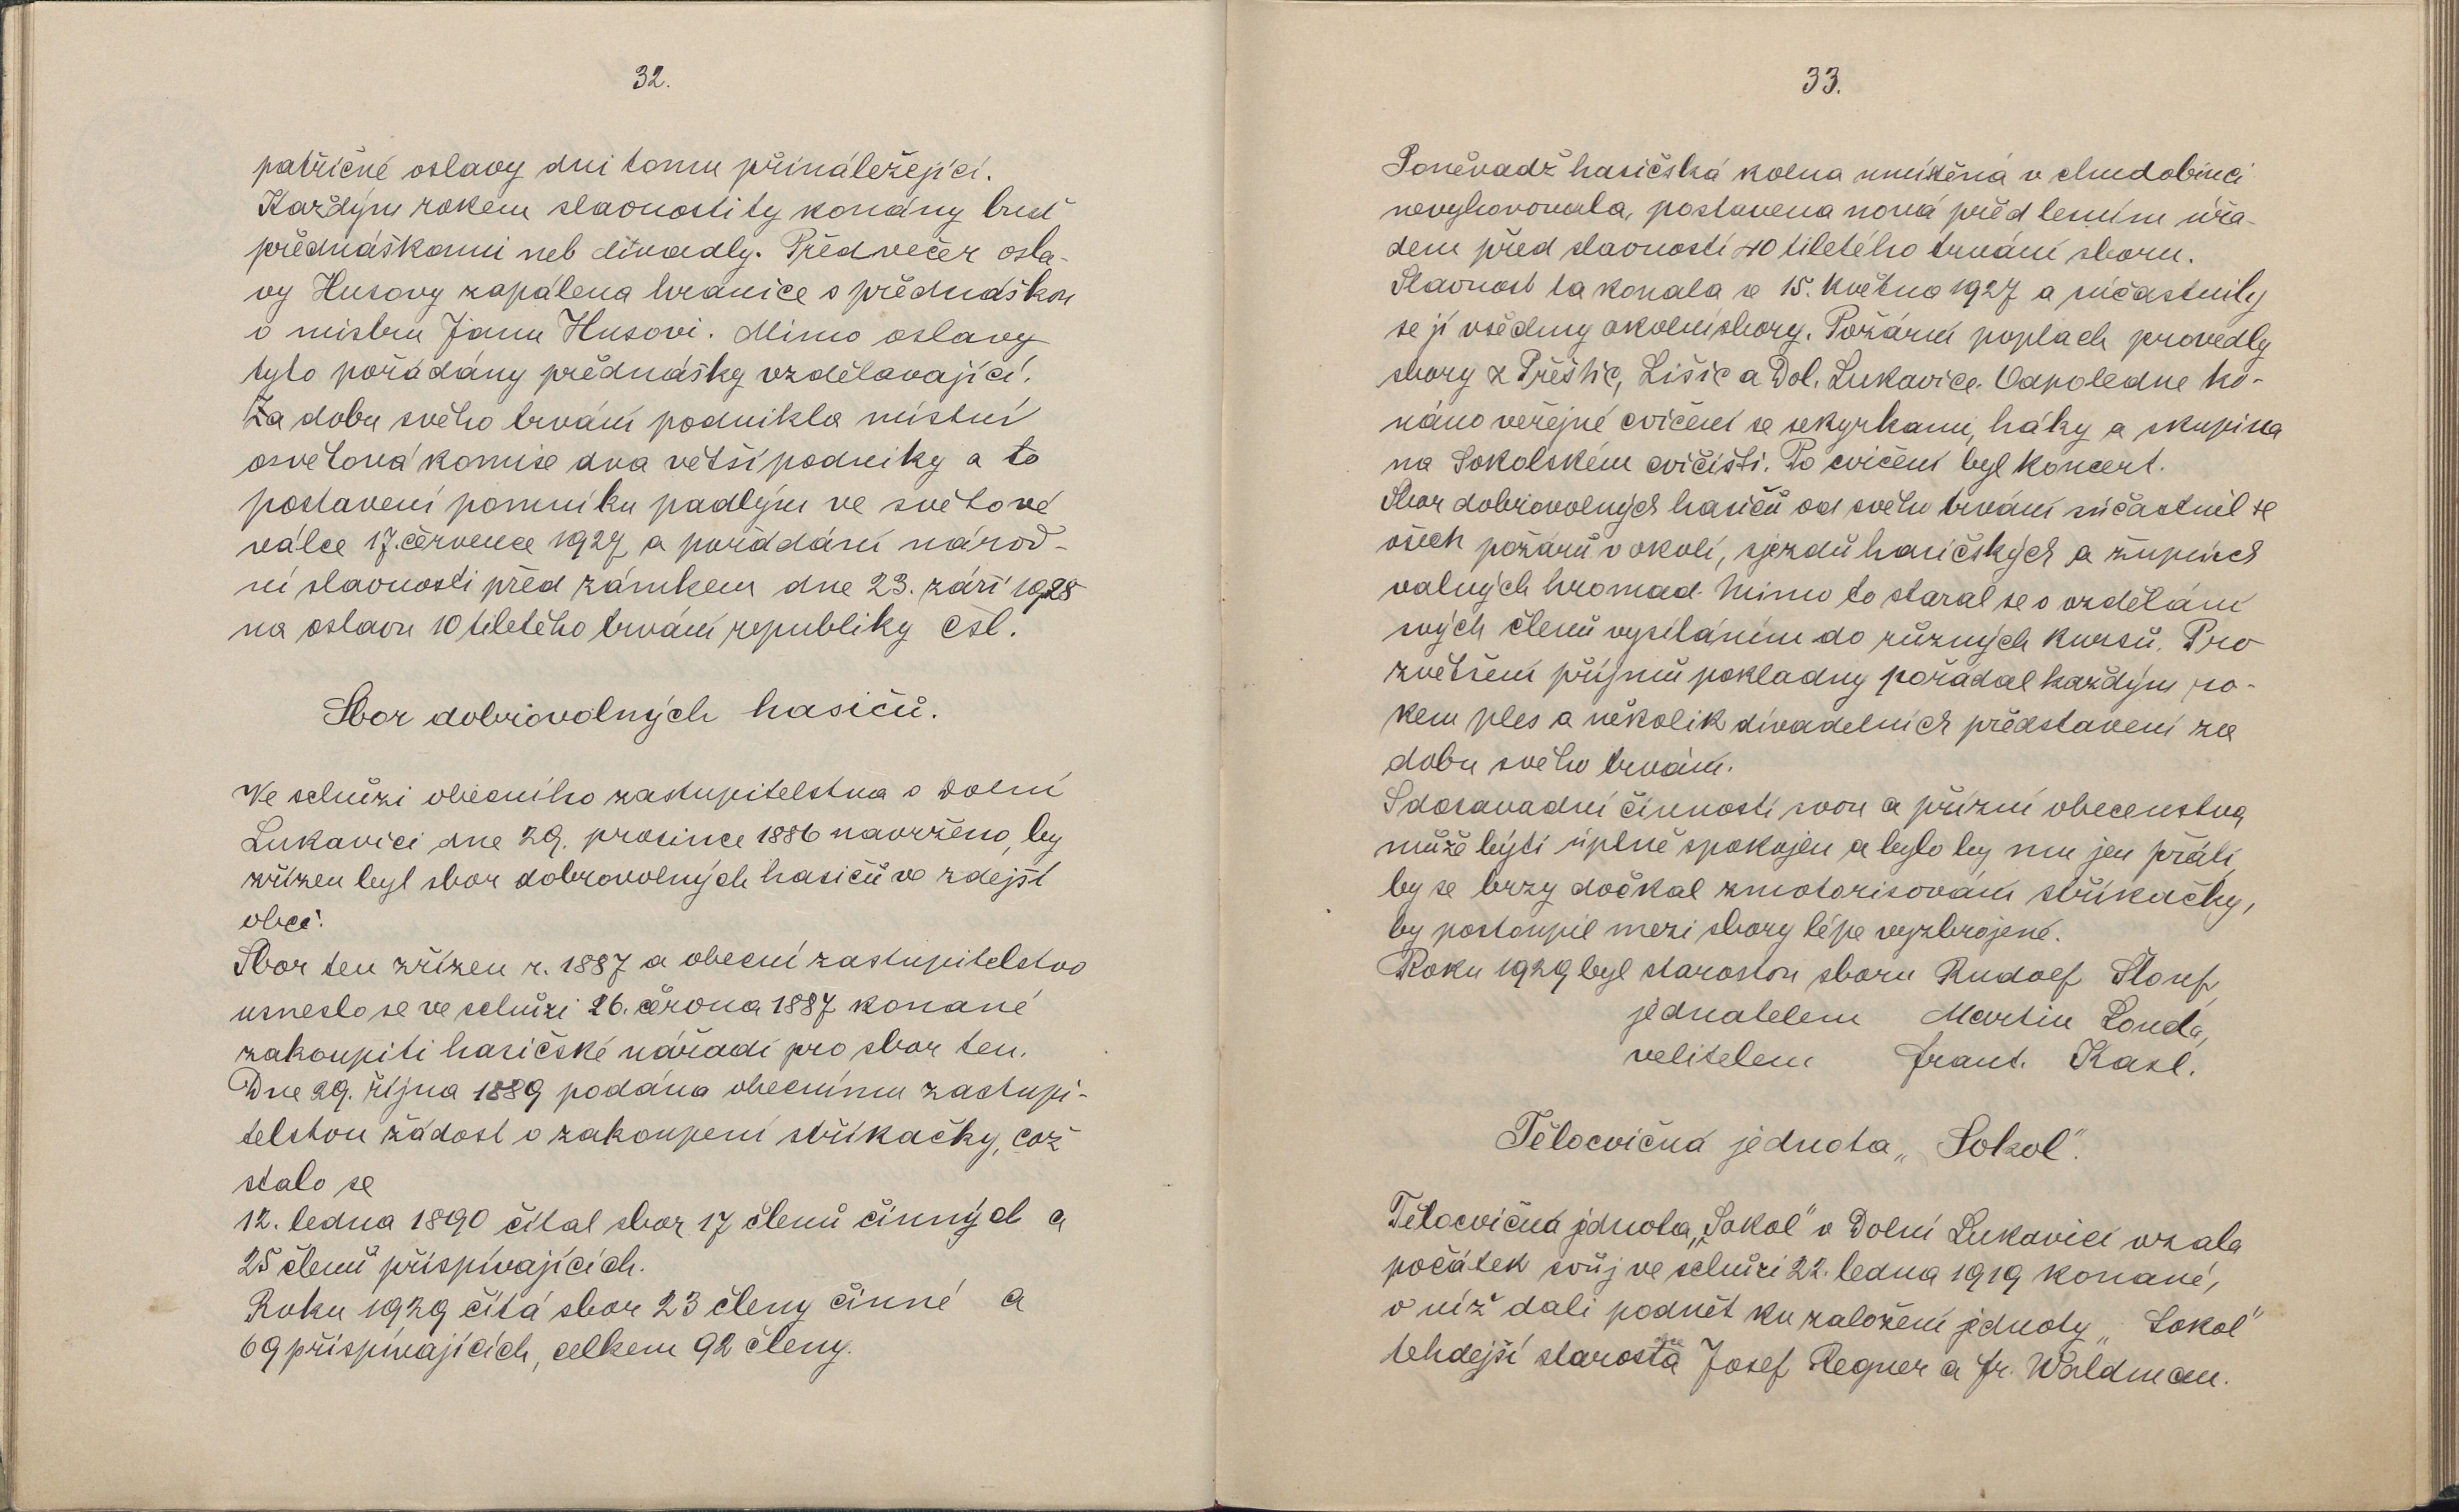 32.
patřičné oslavy dni tomu přináležející.
Každým rokem slavnosti ty konány buď
přednáškami neb divadly. Předvečer osla-
vy Husovy zapálena hranice s přednáškou
o mistru Janu Husovi. Mimo oslavy
tyto pořádány přednášky vzdělavající.
Za dobu svého trvání podnikla místní
osvětová komise dva větší podniky a to
postavení pomníku padlým ve světové
válce 17. července 1927 a pořádání národ-
ní slavnosti před zámkem dne 23. září 1928
na oslavu 10 tiletého trvání republiky čsl.
Sbor dobrovolných hasičů.
Ve schůzi obecního zastupitelstva v Dolní
Lukavici dne 29. prosince 1886 navrženo, by
zřízen byl sbor dobrovolných hasičů ve zdejší
obci.
Sbor ten zřízen r. 1887 a obecní zastupitelstvo
usneslo se ve schůzi 26. června 1887 konané
zakoupiti hasičské nářadí pro sbor ten.
Dne 29. října 1889 podána obecnímu zastupi-
telstvu žádost o zakoupení stříkačky, což
stalo se
12. ledna 1890 čítal sbor 17 členů činných a
25 členů přispívajících.
Roku 1929 čítá sbor 23 členy činné a
69 přispívajících, celkem 92 členy.
33.
Poněvadž hasičská kolna umístěná v chudobinci
nevyhovovala, postavena nová před berním úřa-
dem před slavností 40 tiletého trvání sboru.
Slavnost ta konala se 15. května 1927 a súčastnily
se jí všechny okolní sbory. Požární poplach provedly
sbory z Přeštic, Lišic a Dol. Lukavice. Odpoledne ko-
náno veřejné cvičení se sekyrkami, háky a skupina
na Sokolském cvičišti. Po cvičení byl koncert.
Sbor dobrovolných hasičů od svého trvání súčastnil se
všech požárů v okolí, sjezdů hasičských a župních
valných hromad. Mimo to staral se o vzdělání
svých členů vysíláním do různých kursů. Pro
zvětšení příjmů pokladny pořádal každým ro-
kem ples a několik divadelních představení za
dobu svého trvání.
S dosavadní činností svou a přízní obecenstva
může býti úplně spokojen a bylo by mu jen práti,
by se brzy dočkal zmotorisování stříkačky,
by postoupil mezi sbory lépe vyzbrojené.
Roku 1929 byl starostou sboru Rudolf Šlouf,
jednatelem Martin Londa,
velitelem Frant. Kasl.
Tělocvičná jednota „Sokol".
Tělocvičná jednota „Sokol" v Dolní Lukavici vzala
počátek svůj ve schůzi 22. ledna 1919 konané,
v níž dali podnět ku založení jednoty „Sokol"
tehdejší starosta Josef Regner a Fr. Waldman.